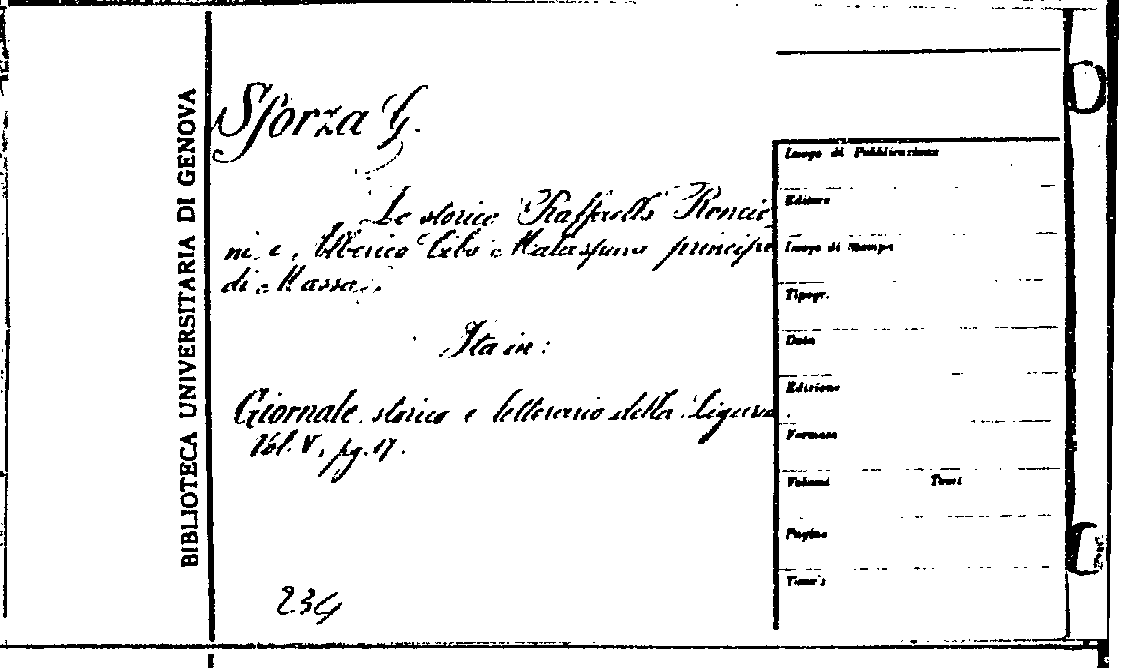 BIBLIOTECA UNIVERSITARIA DI GENOVA
Sforza G.
Lo storico Raffaello Roncio
ni e Alberico Cibo Malaspina principe
di Massa.
Sta in:
Giornale storico e letterario della Liguria.
Vol. V, pg. 17.
234
Luogo di Pubblicazione
Editore
Luogo di Stampa
Tipogr.
Data
Edizione
Formato
Volumi Tomi
Pagine